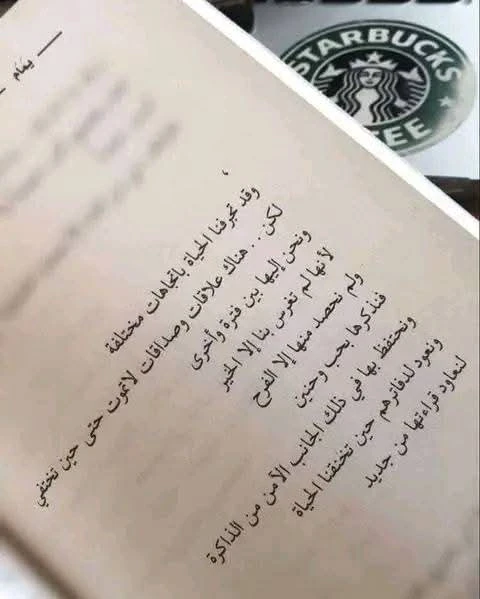 STARBUCKS
COFFEE
— يمام —
،
وقد تجرفنا الحياة باتجاهات مختلفة
لكن.. هناك علاقات وصداقات لاتموت حتى حين تختفي
ونحن إليها بين فترة وأخرى
لأنها لم تغرس بنا إلا الخير
ولم نحصد منها إلا الفرح
فنذكرها بحب وحنين
ونحتفظ بها في ذلك الجانب الآمن من الذاكرة
ونعود لدفاترهم حين تخنقنا الحياة
لنعاود قراءتها من جديد